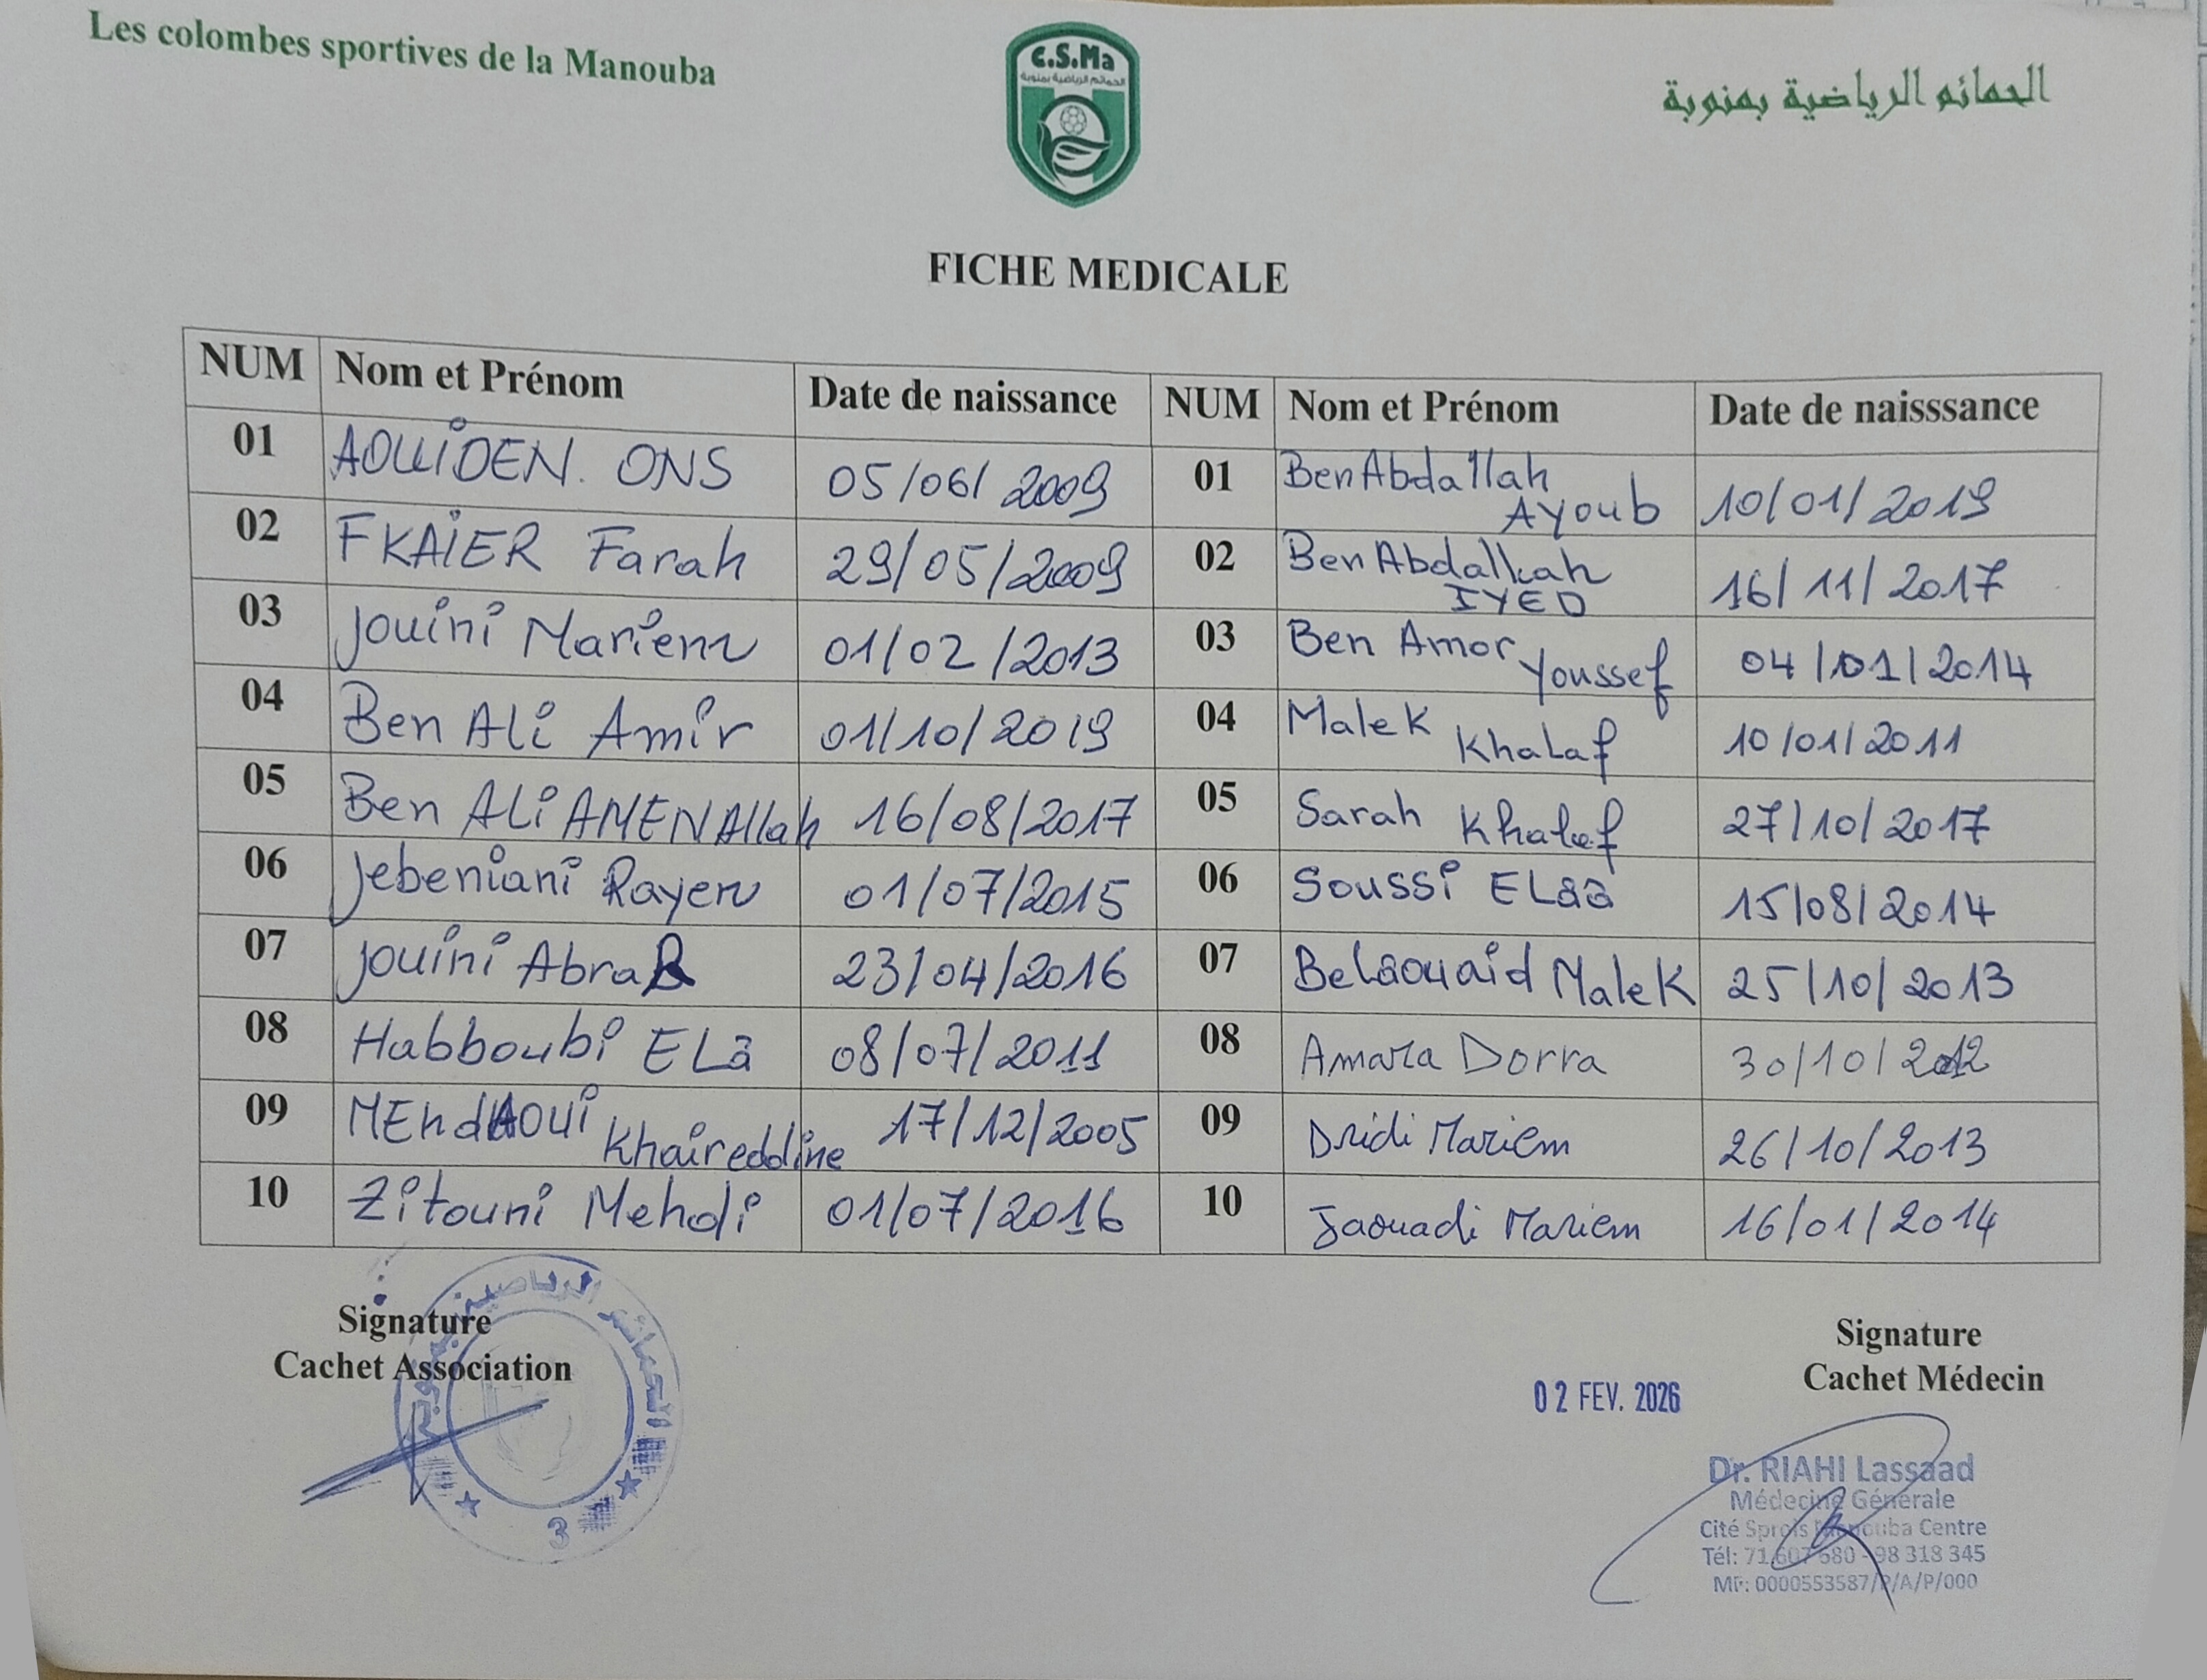 Les colombes sportives de la Manouba
C.S.Ma
الحمائم الرياضية بمنوبة
الحمائم الرياضية بمنوبة
FICHE MEDICALE
NUM Nom et Prénom Date de naissance NUM Nom et Prénom Date de naisssance
01 AOUIDEN. ONS 05/06/2009 01 Ben Abdallah Ayoub 10/01/2019
02 FKAIER Farah 29/05/2009 02 Ben Abdallah IYED 16/11/2017
03 Jouini Mariem 01/02/2013 03 Ben Amor Youssef 04/01/2014
04 Ben Ali Amir 01/10/2019 04 Malek Khalaf 10/01/2011
05 Ben Ali AMEN Allah 16/08/2017 05 Sarah Khalef 27/10/2017
06 Jebeniani Rayen 01/07/2015 06 Soussi ELaa 15/08/2014
07 Jouini Abrar 23/04/2016 07 Belaouaid Malek 25/10/2013
08 Habboubi ELa 08/07/2011 08 Amara Dorra 30/10/2012
09 MEhdAoui Khaireddine 17/12/2005 09 Dridi Mariem 26/10/2013
10 Zitouni Mehdi 01/07/2016 10 Jaouadi Mariem 16/01/2014
Signature
Cachet Association
الحمائم الرياضية بمنوبة
3
Signature
Cachet Médecin
02 FEV. 2026
Dr. RIAHI Lassaad
Médecine Générale
Cité Sprols Manouba Centre
Tél: 71 607 680 - 98 318 345
MF: 0000553587/P/A/P/000